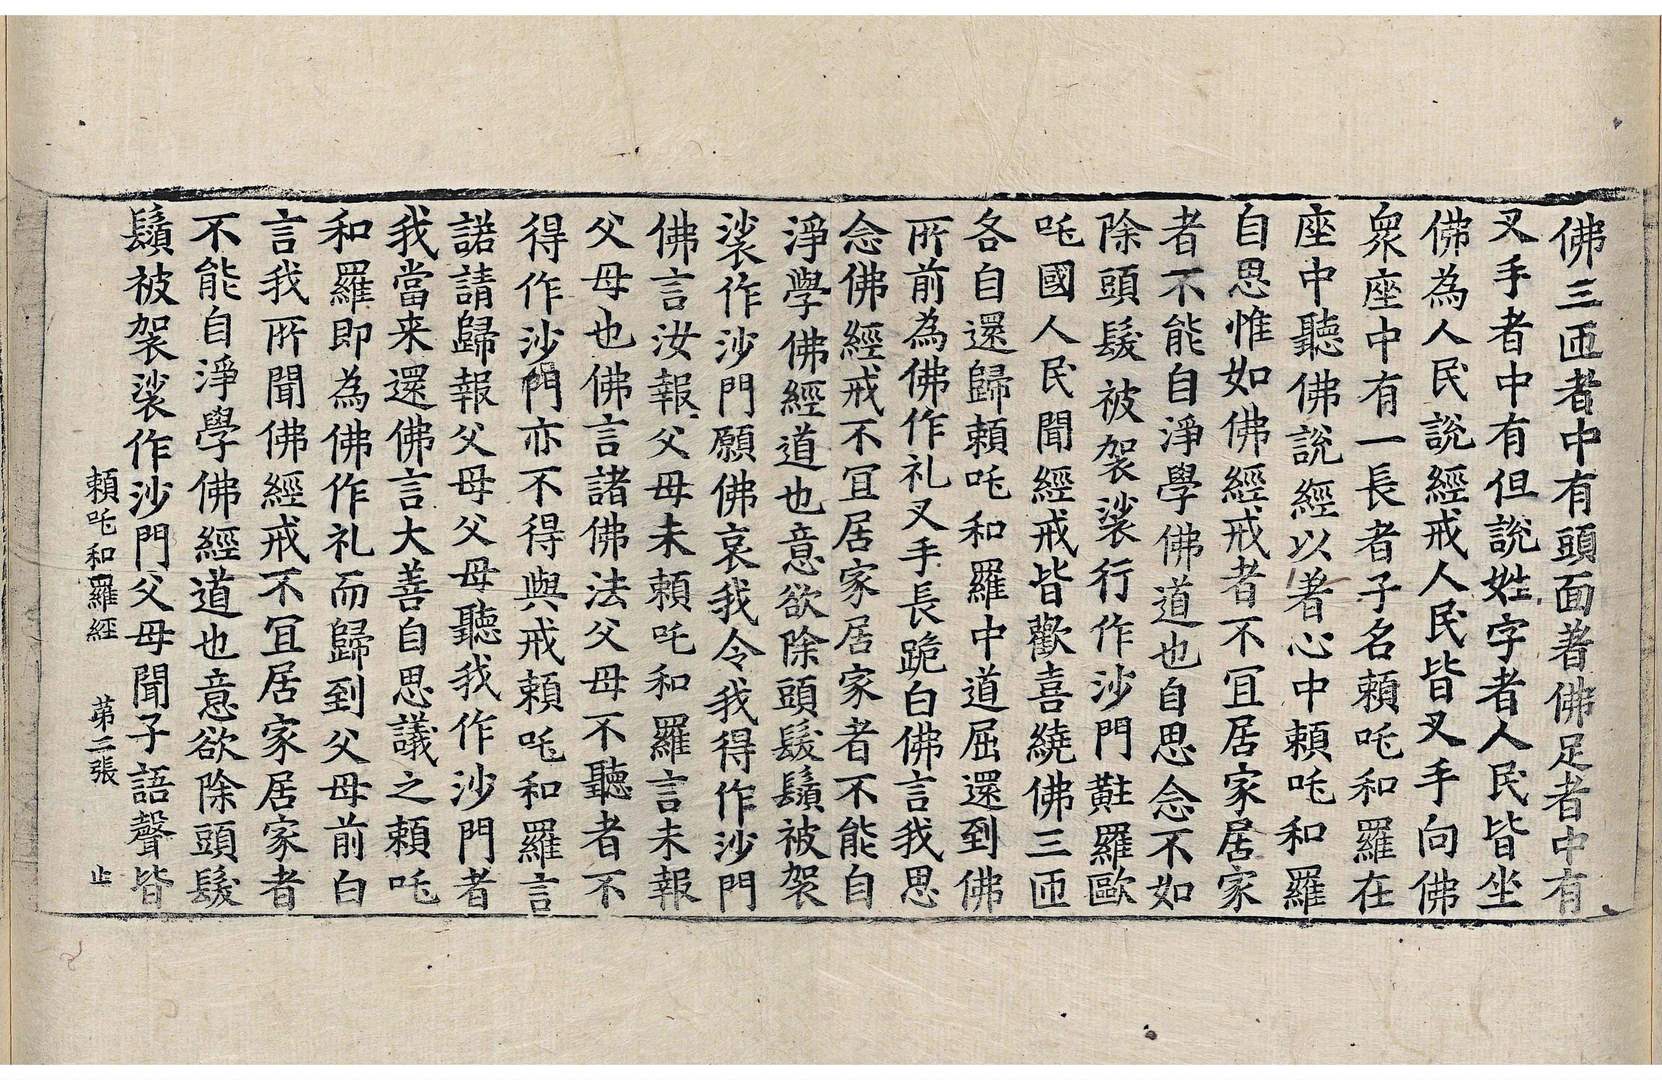 佛三匝者中有頭面著佛足者中有
叉手者中有但說姓字者人民皆坐
佛為人民說經戒人民皆叉手向佛
衆座中有一長者子名頼吒和羅在
座中聽佛說經以著心中頼吒和羅
自思惟如佛經戒者不冝居家居家
者不能自淨學佛道也自思念不如
除頭髮被袈裟行作沙門黈羅歐
吒國人民聞經戒皆歡喜繞佛三匝
各自還歸頼吒和羅中道屈還到佛
所前為佛作礼叉手長跪白佛言我思
念佛經戒不冝居家居家者不能自
淨學佛經道也意欲除頭髮鬚被袈
裟作沙門願佛哀我令我得作沙門
佛言汝報父母未頼吒和羅言未報
父母也佛言諸佛法父母不聽者不
得作沙門亦不得與戒頼吒和羅言
諾請歸報父母父母聽我作沙門者
我當来還佛言大善自思議之頼吒
和羅即為佛作礼而歸到父母前白
言我所聞佛經戒不冝居家居家者
不能自淨學佛經道也意欲除頭髮
鬚被袈裟作沙門父母聞子語聲皆
頼吒和羅經 第二張 止